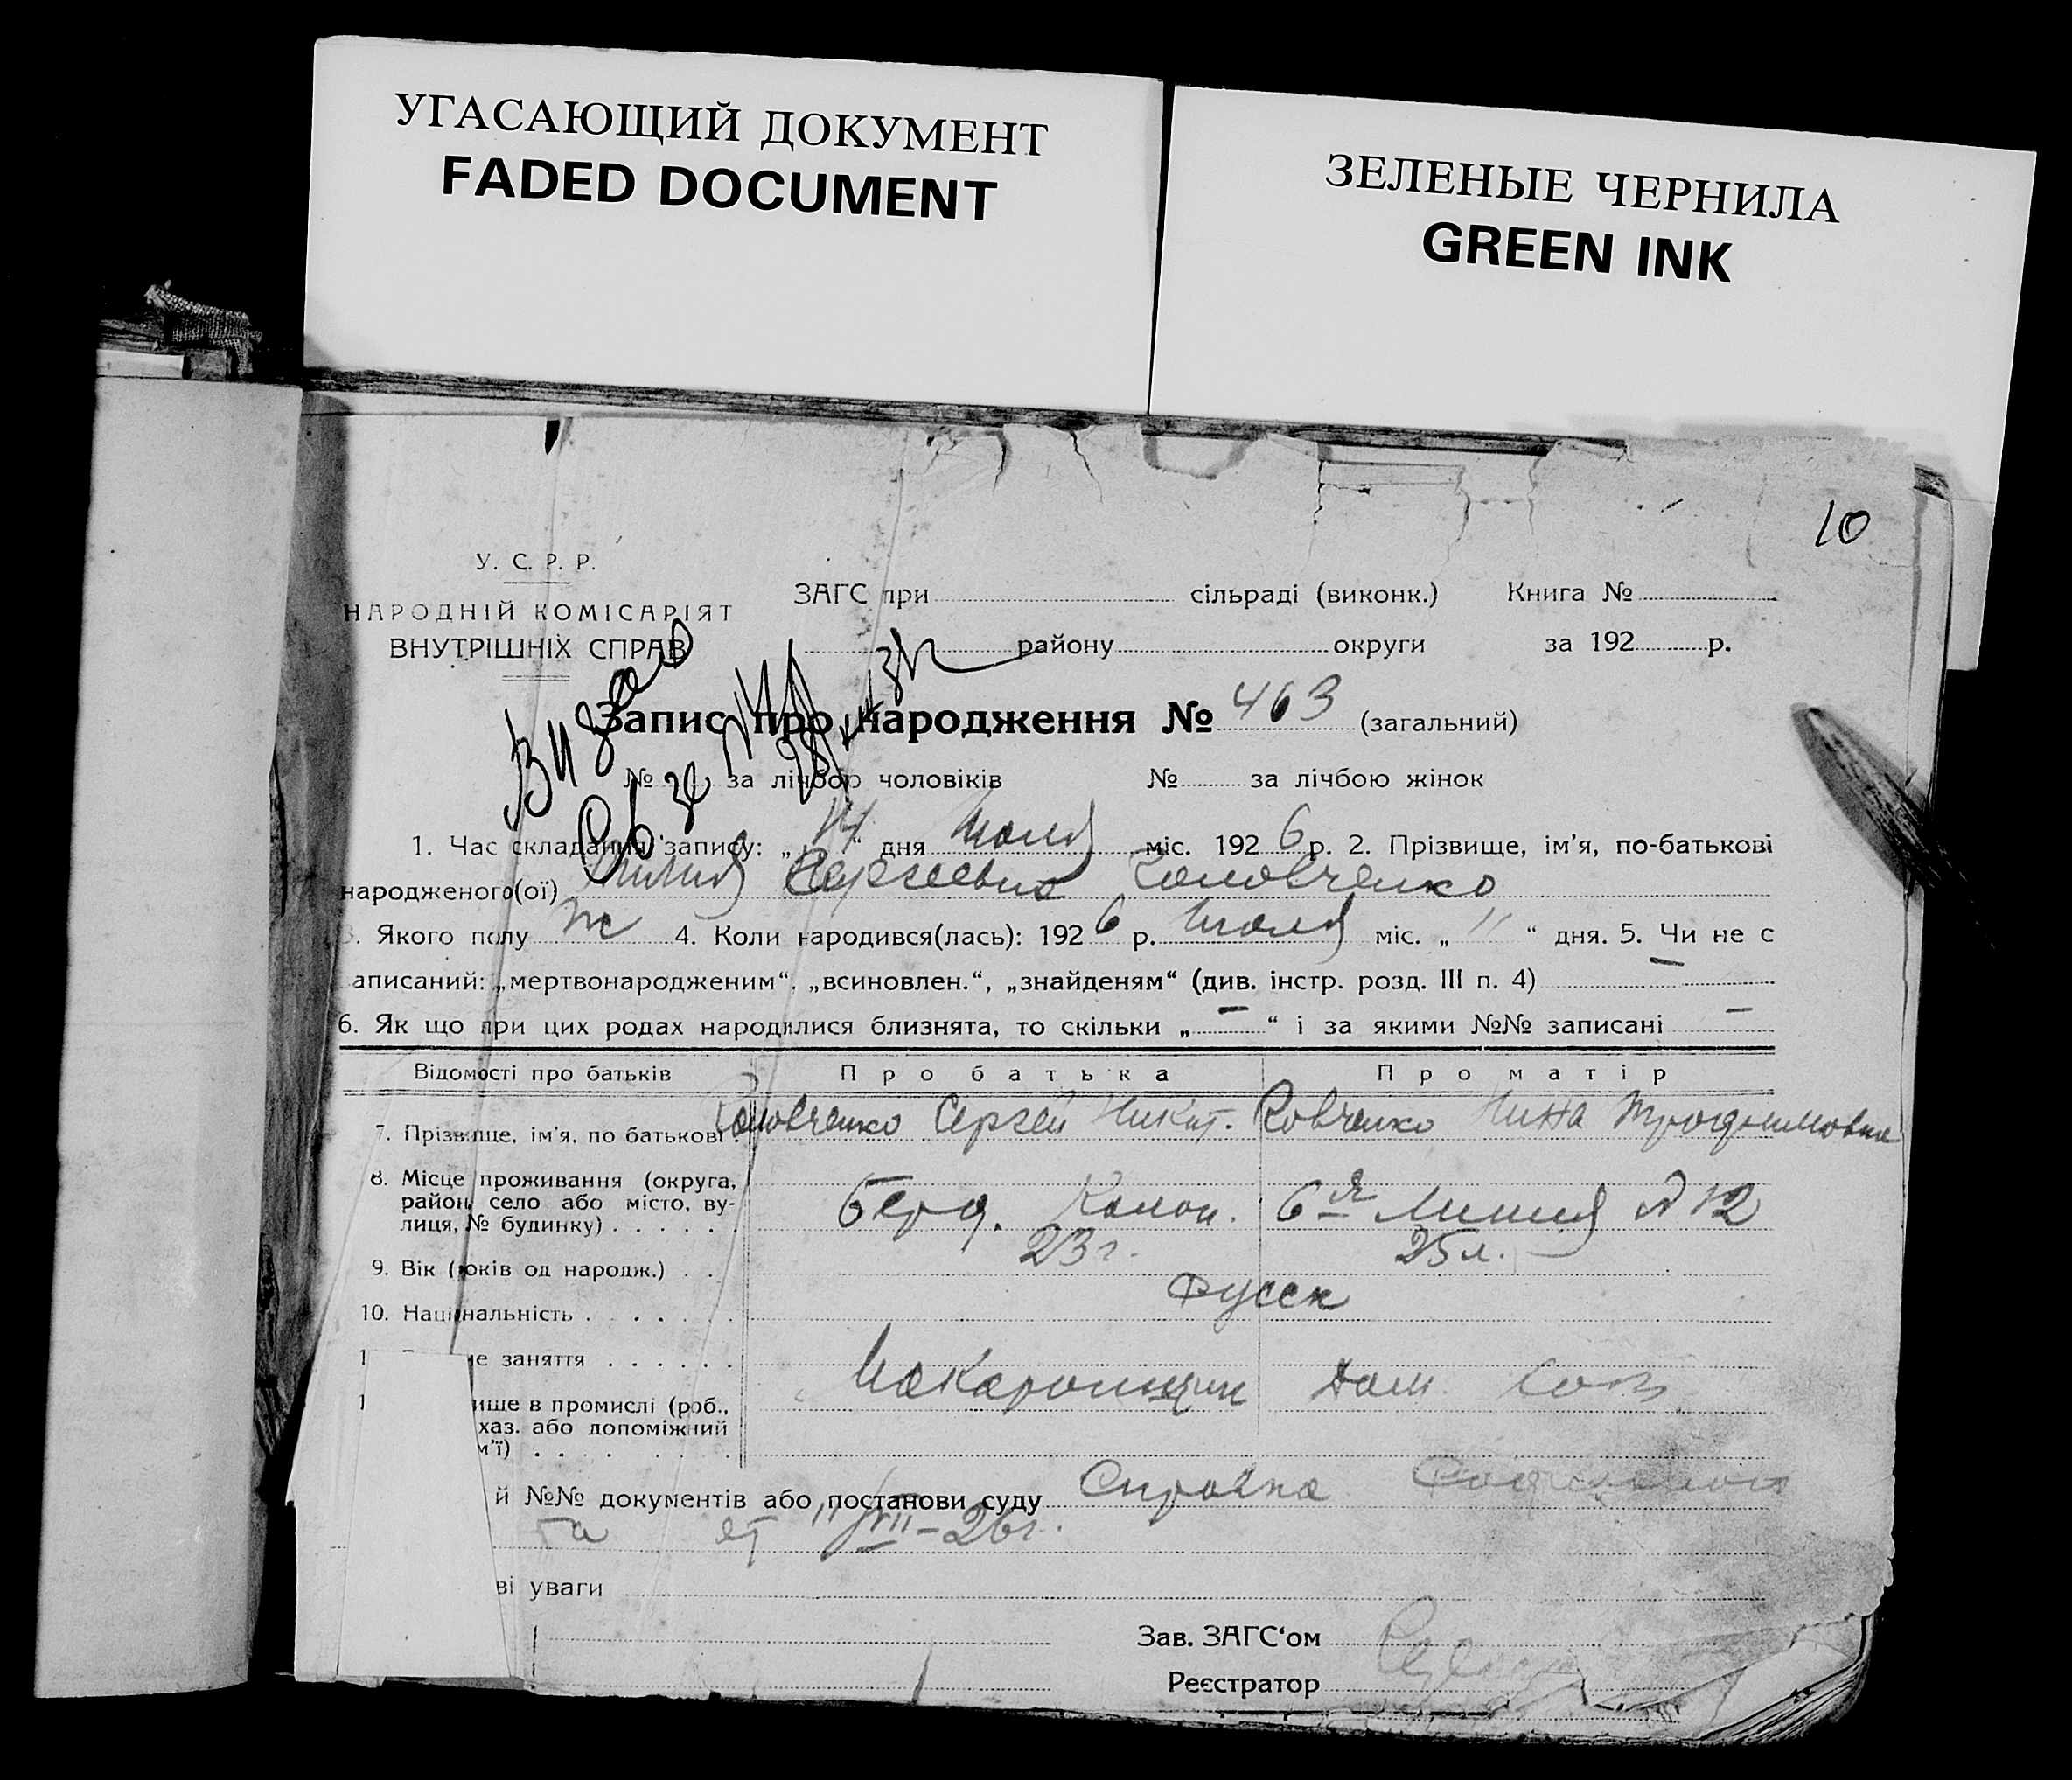 УГАСАЮЩИЙ ДОКУМЕНТ
FADED DOCUMENT
ЗЕЛЕНЫЕ ЧЕРНИЛА
GREEN INK
10
У. С. Р. Р.
НАРОДНІЙ КОМІСАРІЯТ
ВНУТРІШНІХ СПРАВ
ЗАГС при сільраді (виконк.) Книга №
району округи за 192 р.
Запис про народження № 463 (загальний)
№ за лічбою чоловіків № за лічбою жінок
1. Час складання запису: „ 14 “ дня Июля міс. 192 6 р. 2. Прізвище, ім'я, по-батькові
народженого(ої) Сергеевна Головченко
3. Якого полу ж 4. Коли народився(лась): 192 6 р. Июля міс. „ 11 “ дня. 5. Чи не с
аписаний: „мертвонародженим“, „всиновлен.“, „знайденям“ (див. інстр. розд. III п. 4) –
6. Як що при цих родах народилися близнята, то скільки „ – “ і за якими №№ записані –
Відомості про батьків Про батька Про матір
7. Прізвище, ім'я, по батькові . Головченко Сергей Никит. Нина Трофимовна
8. Місце проживання (округа,
район, село або місто, ву-
лиця, № будинку) . . . . . Колон. 6 я Линия 12
9. Вік (років од народж.) . . 23 г. 25 л.
10. Національність . . . . . . русск
не заняття . . . . . . Макаронщик Дом. хоз.
ище в промислі (роб.,
хаз. або допоміжний
м'ї) . . . . . . .
й №№ документів або постанови суду Справка
та от 11/VII–26г.
ві уваги
Зав. ЗАГС‘ом
Реєстратор